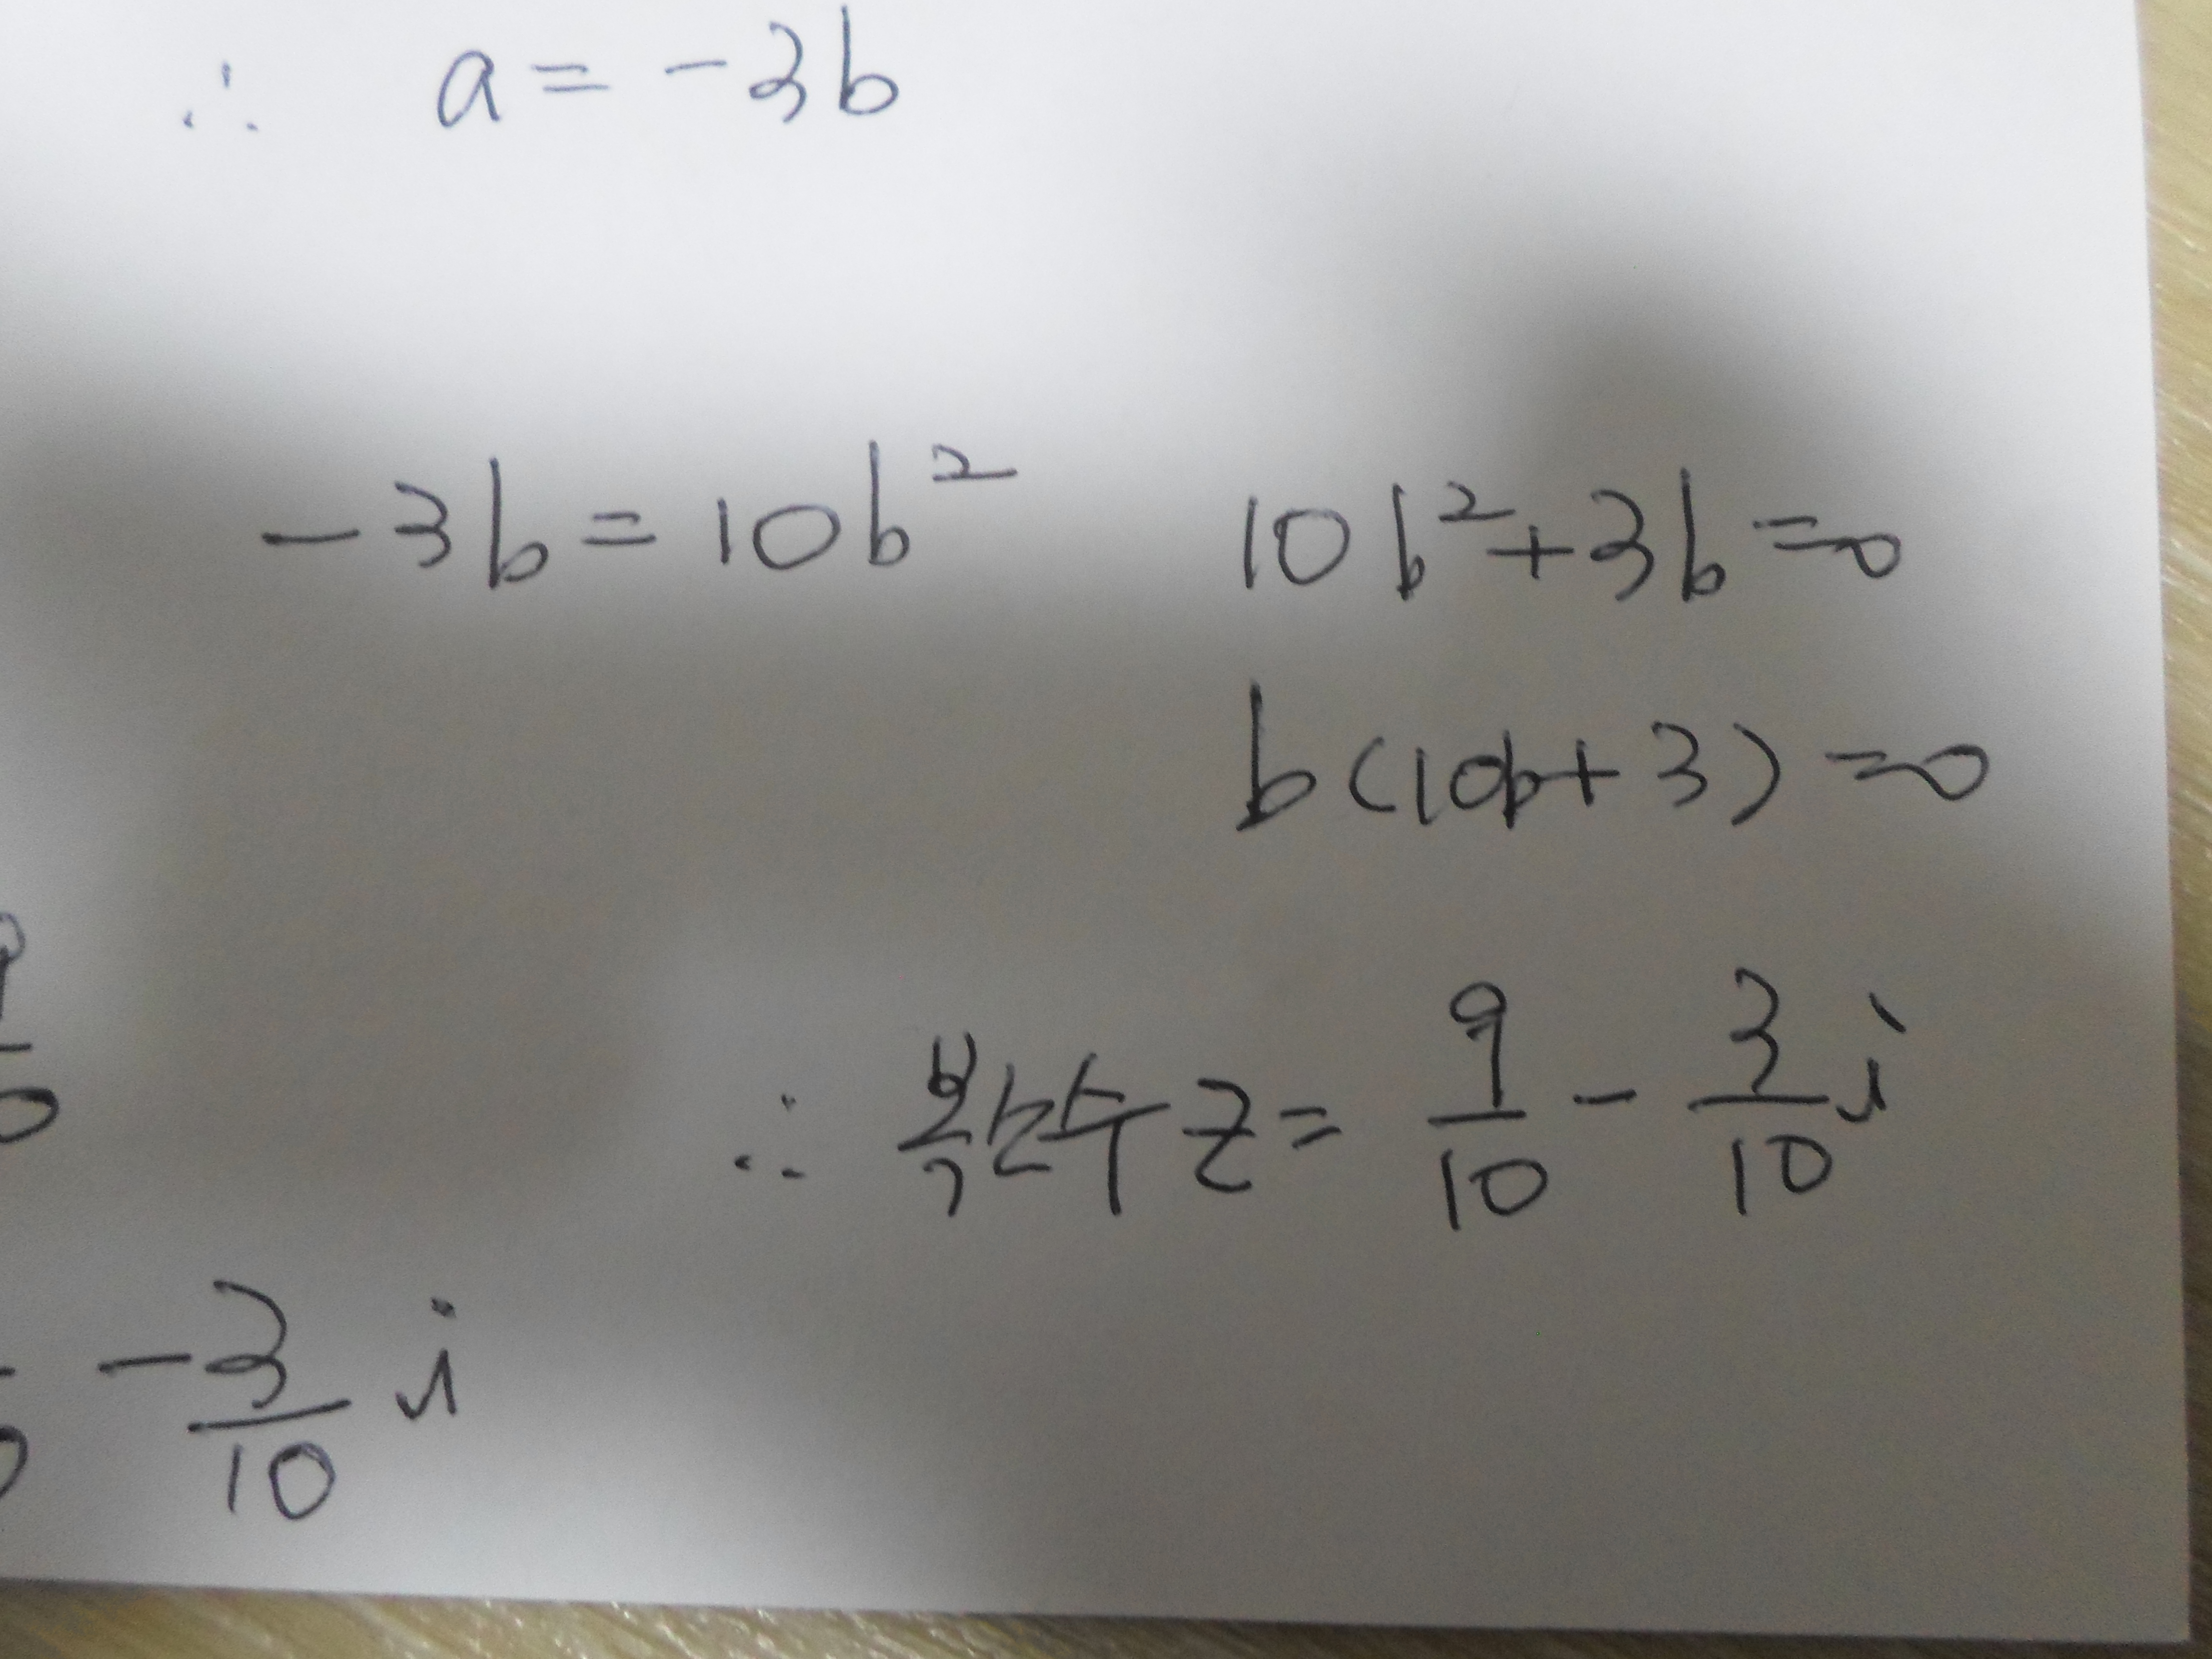 ∴ a = -3b
-3b = 10b² 10b² + 3b = 0
b(10b + 3) = 0
∴ 복소수 z = 9/10 - 3/10 i
-3/10 i